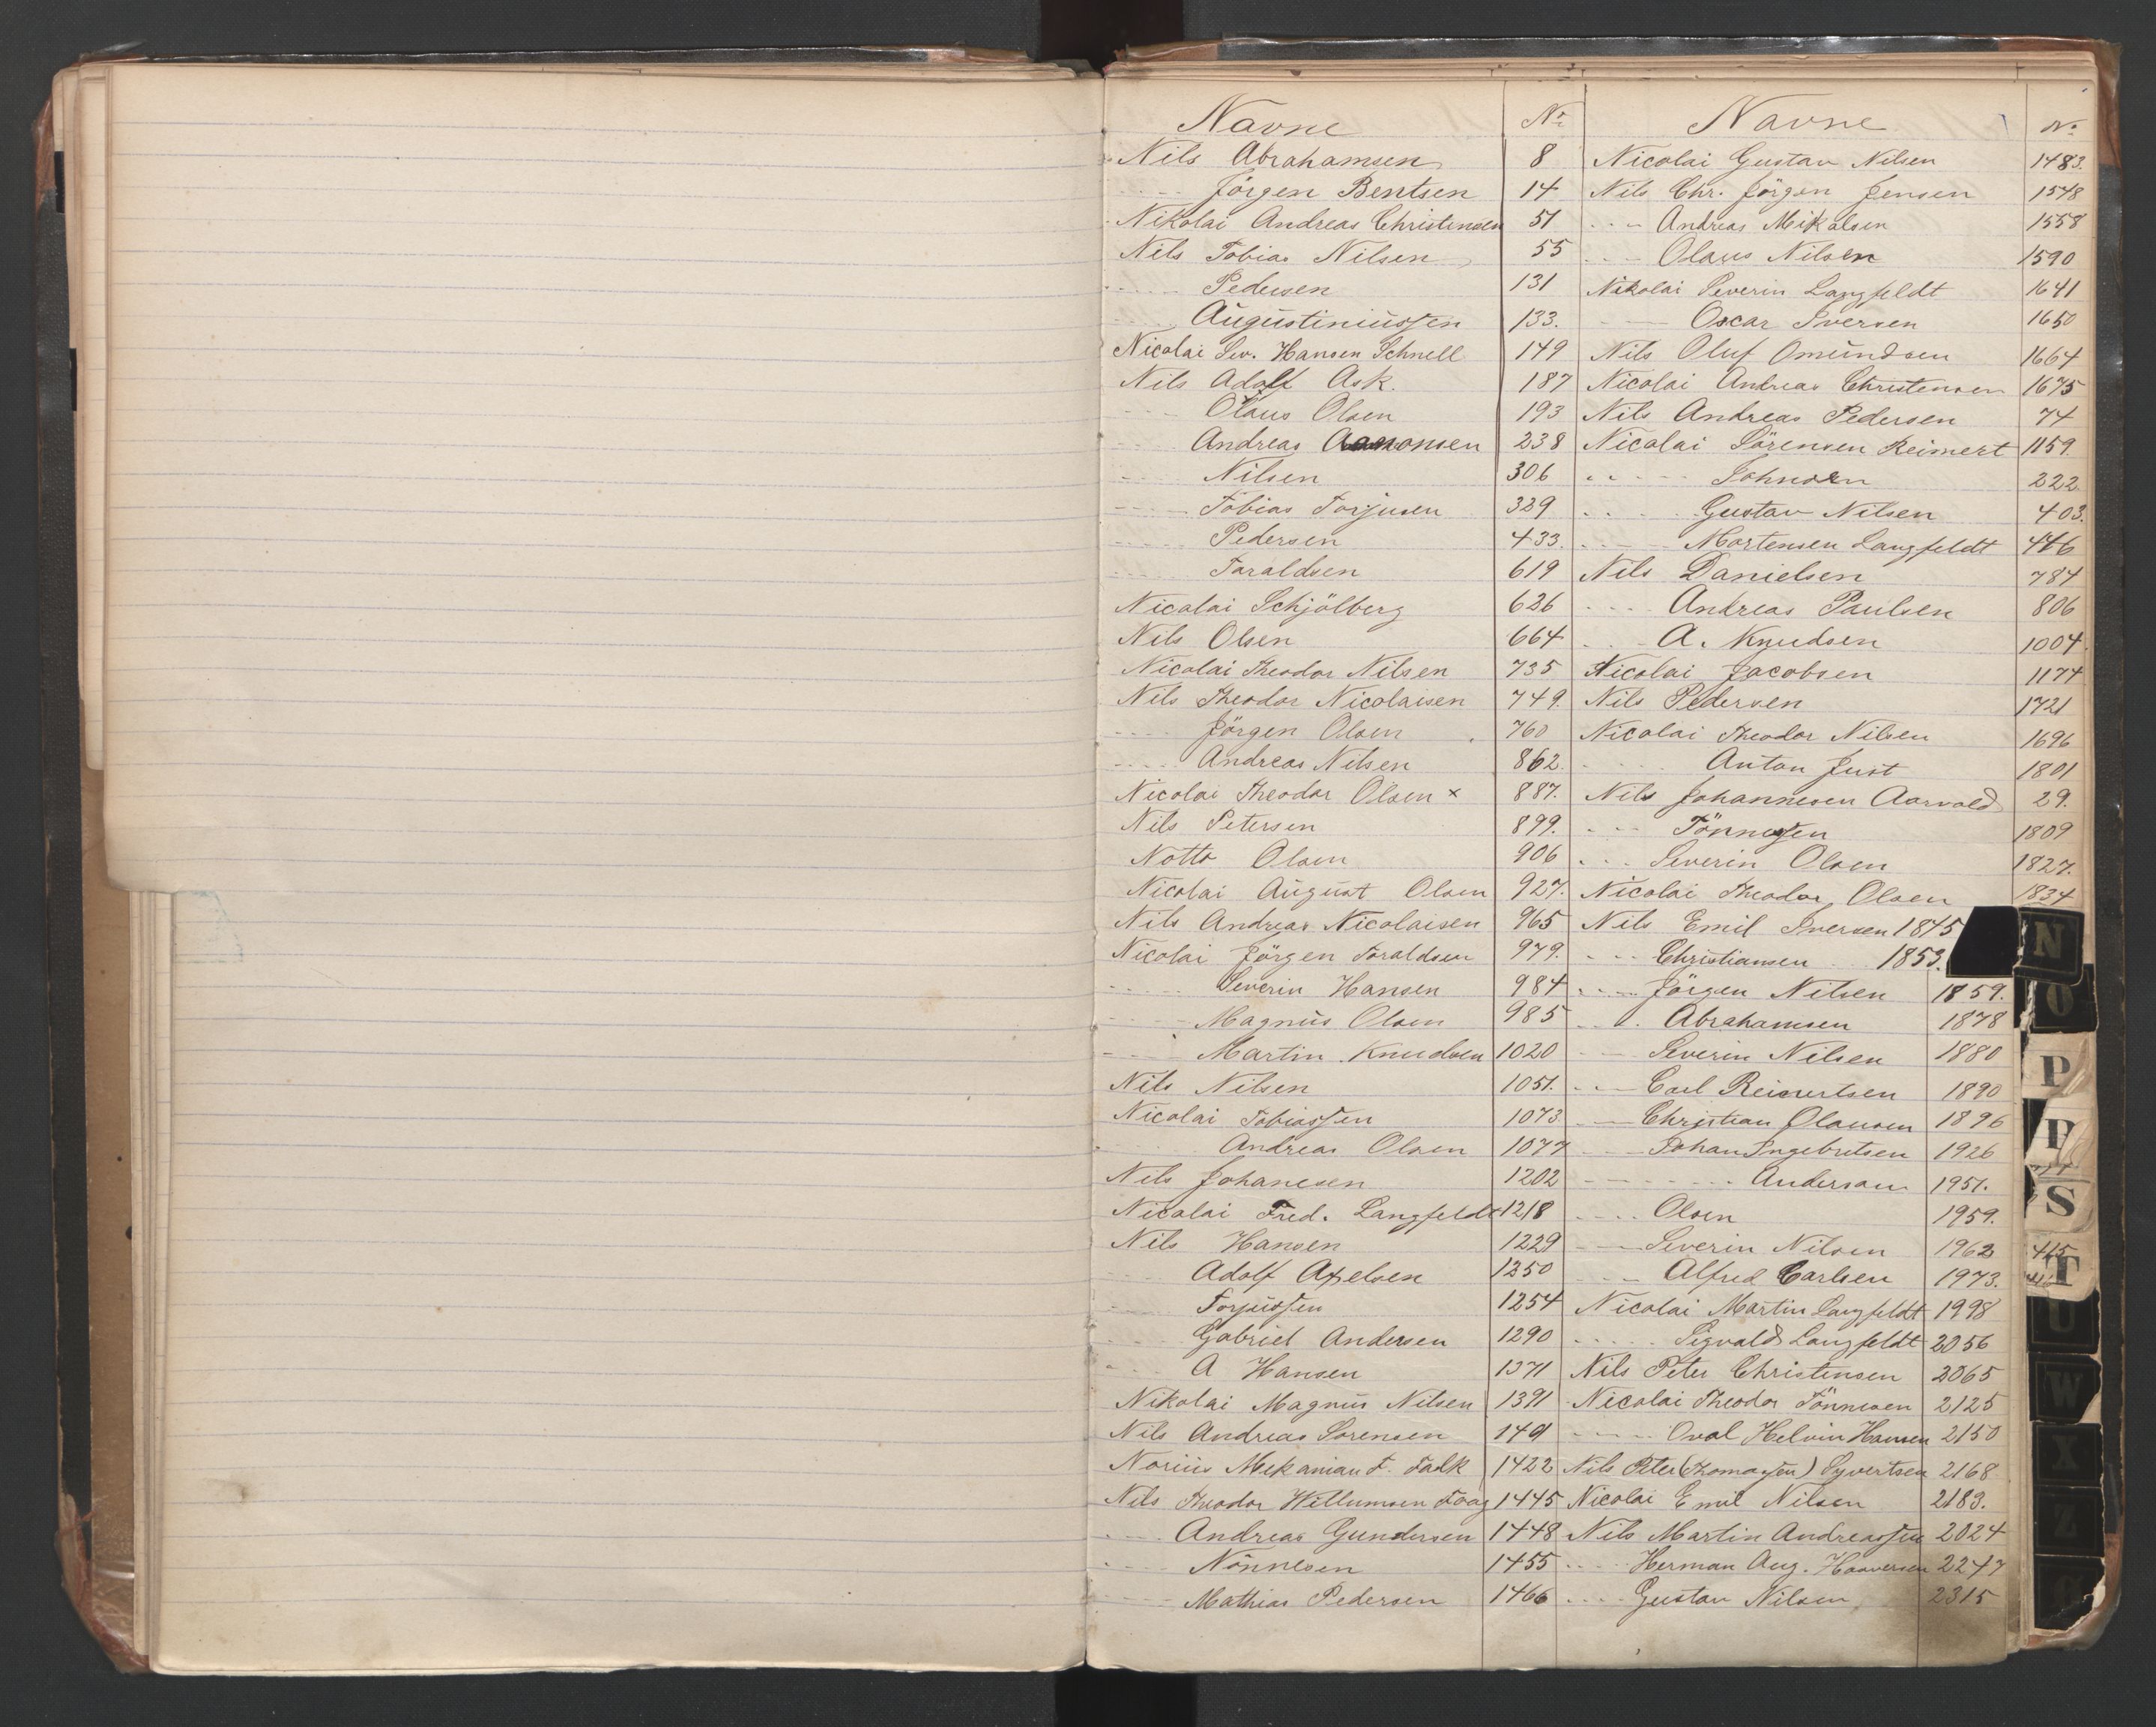 Navne No Navne No
Nils Abrahamsen 8 Nicolai Gustav Nilsen 1483.
---- Jörgen Bentsen 14 Nils Chr. Jörgen Jensen 1548
Nikolai Andreas Christensen 51 --- Andreas Mikalsen 1558
Nils Tobias Nilsen 55 --- Olaus Nilsen 1590
---- Pedersen 131 Nikolai Severin Langfeldt 1641
---- Augustiniussen 133. --- Oscar Iversen 1650
Nicolai Sev. Hansen Schnell 149 Nils Oluf Omundsen 1664
Nils Adolf Ask. 187 Nicolai Andreas Christensen 1675
---- Olaus Olsen 193 Nils Andreas Pedersen 74
---- Andreas 238 Nicolai Sörensen Reimert 1159.
---- Nilsen 306 ---- Johnsen 222.
---- Tobias Torjusen 329 ---- Gustav Nilsen 403.
---- Pedersen 433. ---- Mortensen Langfeldt 446
---- Taraldsen 619 Nils Danielsen 784
Nicolai Schjölberg 636 ---- Andreas Paulsen 806
Nils Olsen 664 ---- A. Knudsen 1004.
Nicolai Theodor Nilsen 735 Nicolai Jacobsen 1174
Nils Theodor Nicolaisen 749. Nils Pedersen 1721
---- Jörgen Olsen 760 Nicolai Theodor Nilsen 1696
---- Andreas Nilsen 862. ---- Anton Just 1801
Nicolai Theodor Olsen x 887. Nils Johannesen Aarvold 29.
Nils Petersen 899. --- Tönnessen 1809
Notto Olsen 906 --- Severin Olsen 1827.
Nicolai August Olsen 927. Nicolai Theodor Olsen 1834
Nils Andreas Nicolaisen 965 Nils Emil Iversen 1845
Nicolai Jörgen Toraldsen 979. --- Christiansen 1853.
---- Severin Hansen 984 ---- Jörgen Nilsen 1859.
---- Magnus Olsen 985 ---- Abrahamsen 1878
---- Martin Knudsen 1020 --- Severin Nilsen 1880
Nils Nilsen 1051. --- Carl Reinertsen 1890
Nicolai Tobiassen 1073 --- Christian Olausen 1896
---- Andreas Olsen 1077 --- Johan Ingebretsen 1926
Nils Johanesen 1202 ------ Andersen 1951.
Nicolai Fred. Langfeldt 1218 ---- Olsen 1959.
Nils Hansen 1229 ---- Severin Nilsen 1962
---- Adolf Axelsen 1250 ---- Alfred Carlsen 1973.
---- Torjussen 1254 Nicolai Martin Langfeldt 1998
---- Gabriel Andersen 1290 ---- Sigvald Langfeldt 2056
---- A Hansen 1371 Nils Peter Christensen 2065
Nikolai Magnus Nilsen 1391 Nicolai Theodor Tönnesen 2125
Nils Andreas Sorensen 1401 ---- Hansen 2150
Norius Mekanian F. Falk 1422 Nils Peter (Thomassen) Syvertsen 2168
Nils Theodor Willumsen 1445 Nicolai Emil Nilsen 2183.
---- Andreas Gundersen 1448 Nils Martin Andreassen 2024
---- Nönnesen 1455 ---- Herman Aug. Haaversen 2247
---- Mathias Pedersen 1466 ---- Gustav Nilsen 2315
N
O
P
S
T
U
W
X
Z